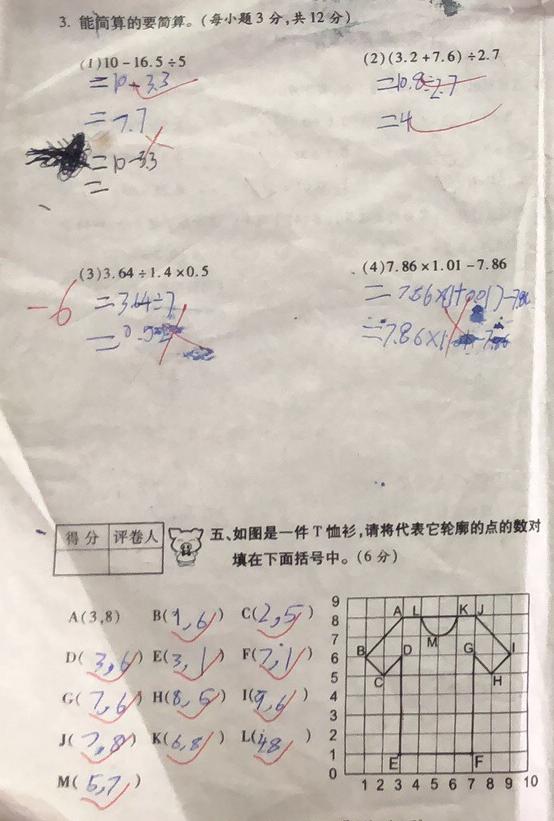 3. 能简算的要简算。(每小题3分,共12分)
(1)10-16.5÷5
(2)(3.2+7.6)÷2.7
=10-3.3
=10.8÷2.7
=7.7
=4
=10-3.3
=
(3)3.64÷1.4×0.5
(4)7.86×1.01-7.86
-6
=3.64÷7
=7.86×(1+0.01)-7.86
=7.86×1
得分 评卷人
五、如图是一件T恤衫,请将代表它轮廓的点的数对
填在下面括号中。(6分)
A(3,8) B(1,6) C(2,5)
D(3,6) E(3,1) F(7,1)
G(7,6) H(8,5) I(9,6)
J(7,8) K(6,8) L(48)
M(5,7)
9
8
7
6
5
4
3
2
1
0
A L K J
M
B D G I
C H
E F
1 2 3 4 5 6 7 8 9 10